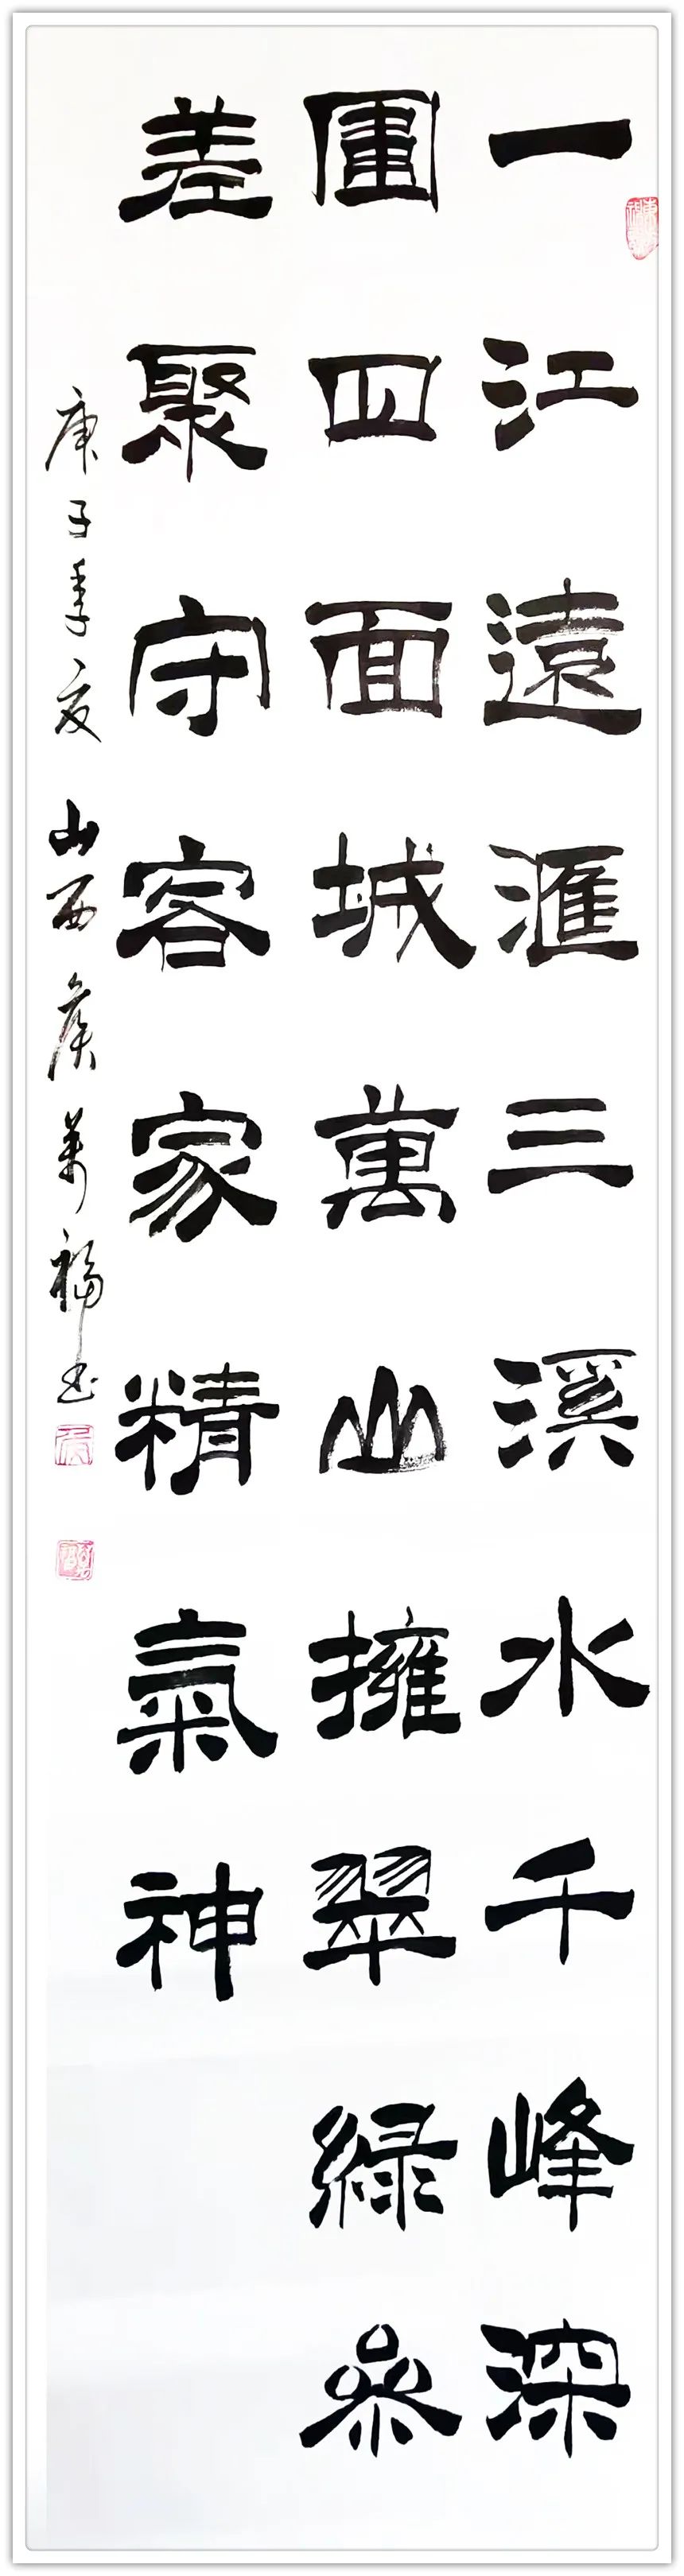 一江遠滙三溪水千峰深
圍四面城萬山擁翠綠參
差聚守客家精氣神
庚子季夏山西侯萬福书